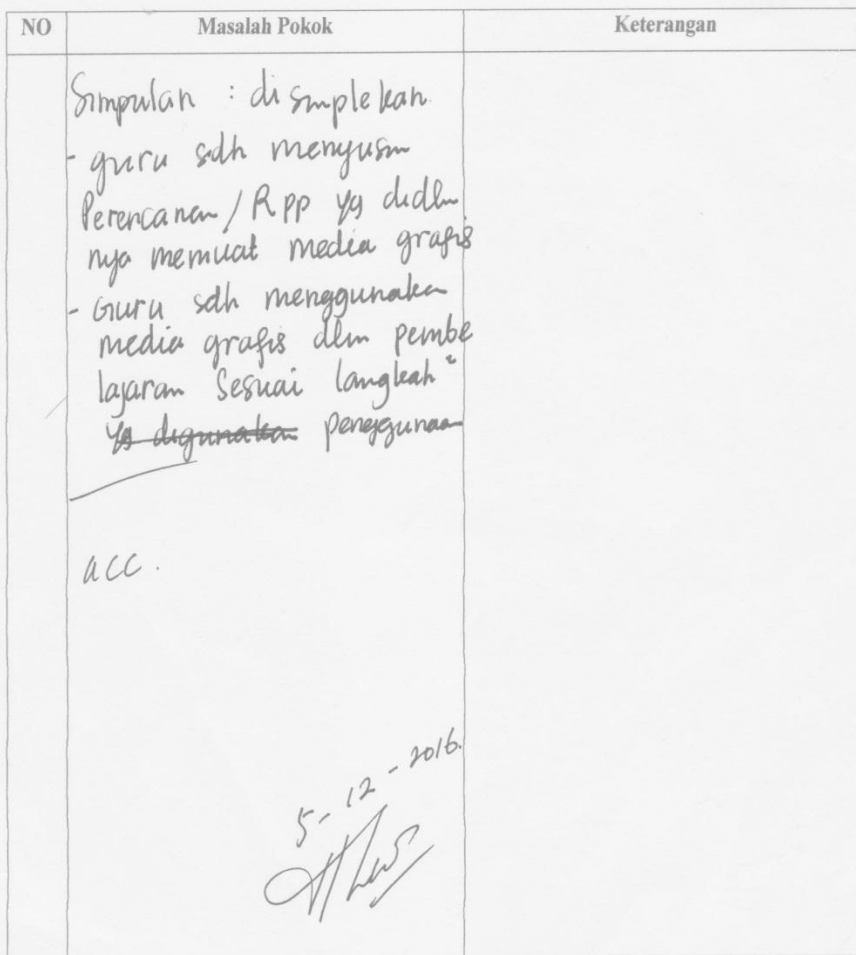 NO Masalah Pokok Keterangan
Simpulan : disimplekan
- guru sdh menyusun
Perencanan / RPP yg didlm
nya memuat media grafis
- Guru sdh menggunakan
media grafis dlm pembe
lajaran sesuai langkah ²
yg digunakan penggunaan
acc.
5-12-2016.